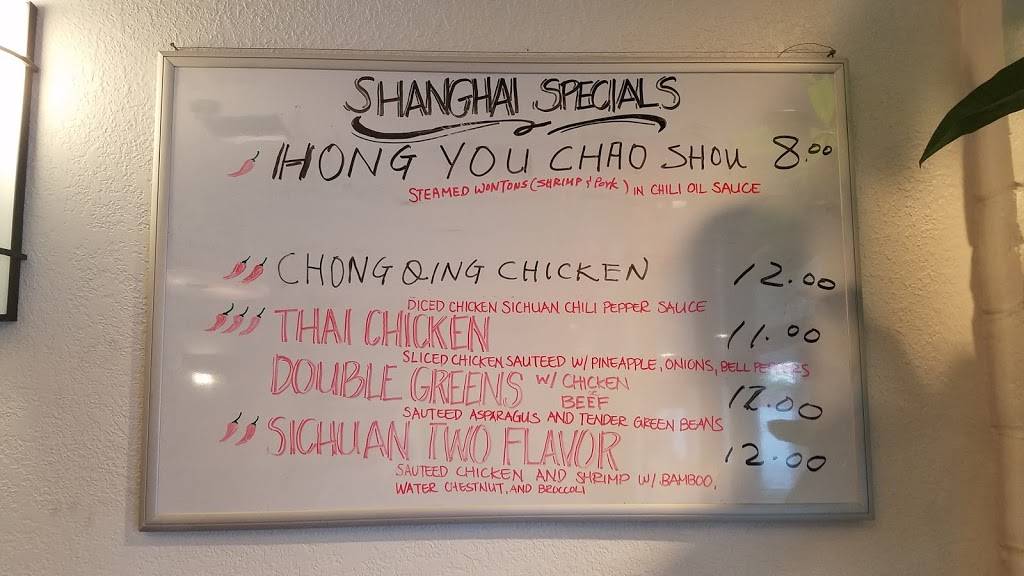 SHANGHAI SPECIALS
HONG YOU CHAO SHOU 8.00
STEAMED WONTONS (SHRIMP & PORK) IN CHILI OIL SAUCE
CHONG QING CHICKEN 12.00
DICED CHICKEN SICHUAN CHILI PEPPER SAUCE
THAI CHICKEN 11.00
SLICED CHICKEN SAUTEED W/ PINEAPPLE, ONIONS, BELL PEPPERS
DOUBLE GREENS W/ CHICKEN
BEEF 12.00
SAUTEED ASPARAGUS AND TENDER GREEN BEANS
SICHUAN TWO FLAVOR 12.00
SAUTEED CHICKEN AND SHRIMP W/ BAMBOO,
WATER CHESTNUT, AND BROCCOLI